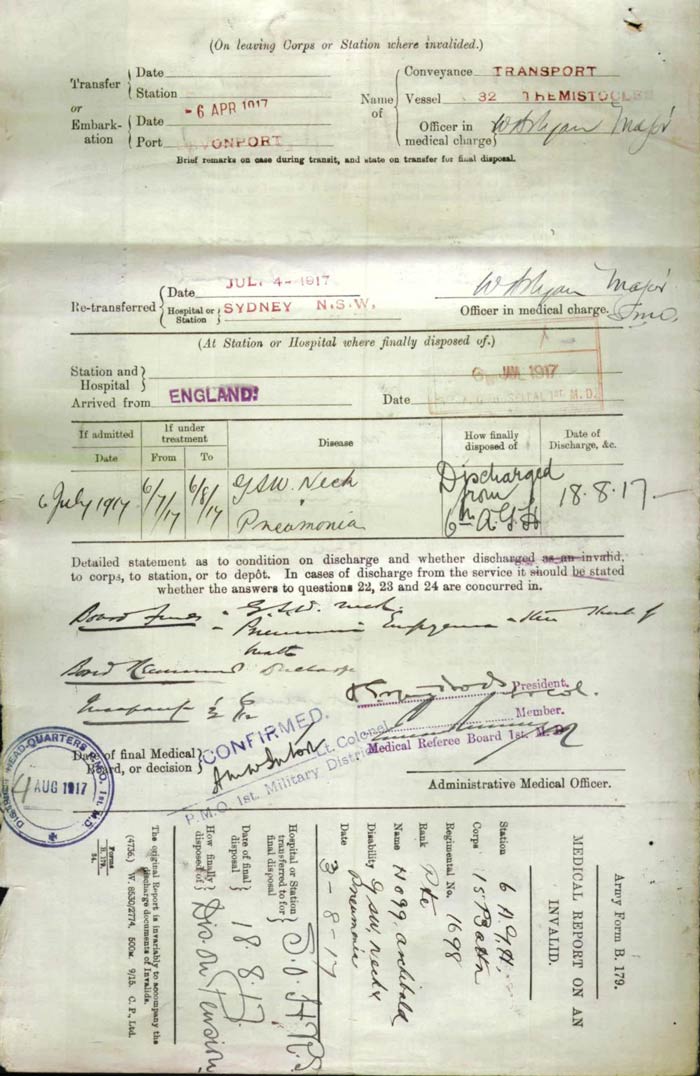 (On leaving Corps or Station where invalided.)
Transfer
or
Embark-
ation
Date
Station
Date - 6 APR 1917
Port VONPORT
Name
of
Conveyance TRANSPORT
Vessel 32 THEMISTOCLES
Officer in
medical charge Major
Brief remarks on case during transit, and state on transfer for final disposal.
Re-transferred
Date JUL 4 - 1917
Hospital or
Station SYDNEY N.S.W.
Major
Officer in medical charge.
(At Station or Hospital where finally disposed of.)
Station and
Hospital
Arrived from ENGLAND.
Date 6 JUL 1917
If admitted
Date
If under
treatment
From
To
Disease
How finally
disposed of
Date of
Discharge, &c.
6 July 1917
6/7/17
6/8/17
GSW. Neck
Pneumonia
Discharged
from
6th A.G.H
18.8.17
Detailed statement as to condition on discharge and whether discharged as an invalid,
to corps, to station, or to depôt. In cases of discharge from the service it should be stated
whether the answers to questions 22, 23 and 24 are concurred in.
Board finds - G.S.W. neck
Pneumonia Empyema
Board Discharge
President.
Member.
Medical Referee Board 1st. M.D.
Date of final Medical
Board, or decision
CONFIRMED.
Lt. Colonel
P.M.O. 1st. Military District
Administrative Medical Officer.
HEAD-QUARTERS
1st. M.D.
4 AUG 1917
Army Form B. 179.
MEDICAL REPORT ON AN
INVALID.
Station 6 A.G.H.
Corps 15 Battn
Regimental No. 1698
Rank Pte
Name Hogg, Archibald
Disability GSW, Neck &
Pneumonia
Date 3-8-17
Hospital or Station
transferred to for
final disposal
Date of final
disposal 18.8.17.
How finally
disposed of Dis. on Pension
The original Report is invariably to accompany the
discharge documents of Invalids.
(4736.) W. 8530/2774. 500M. 9/15. C. P., Ltd.
Forms
B. 179.
34.